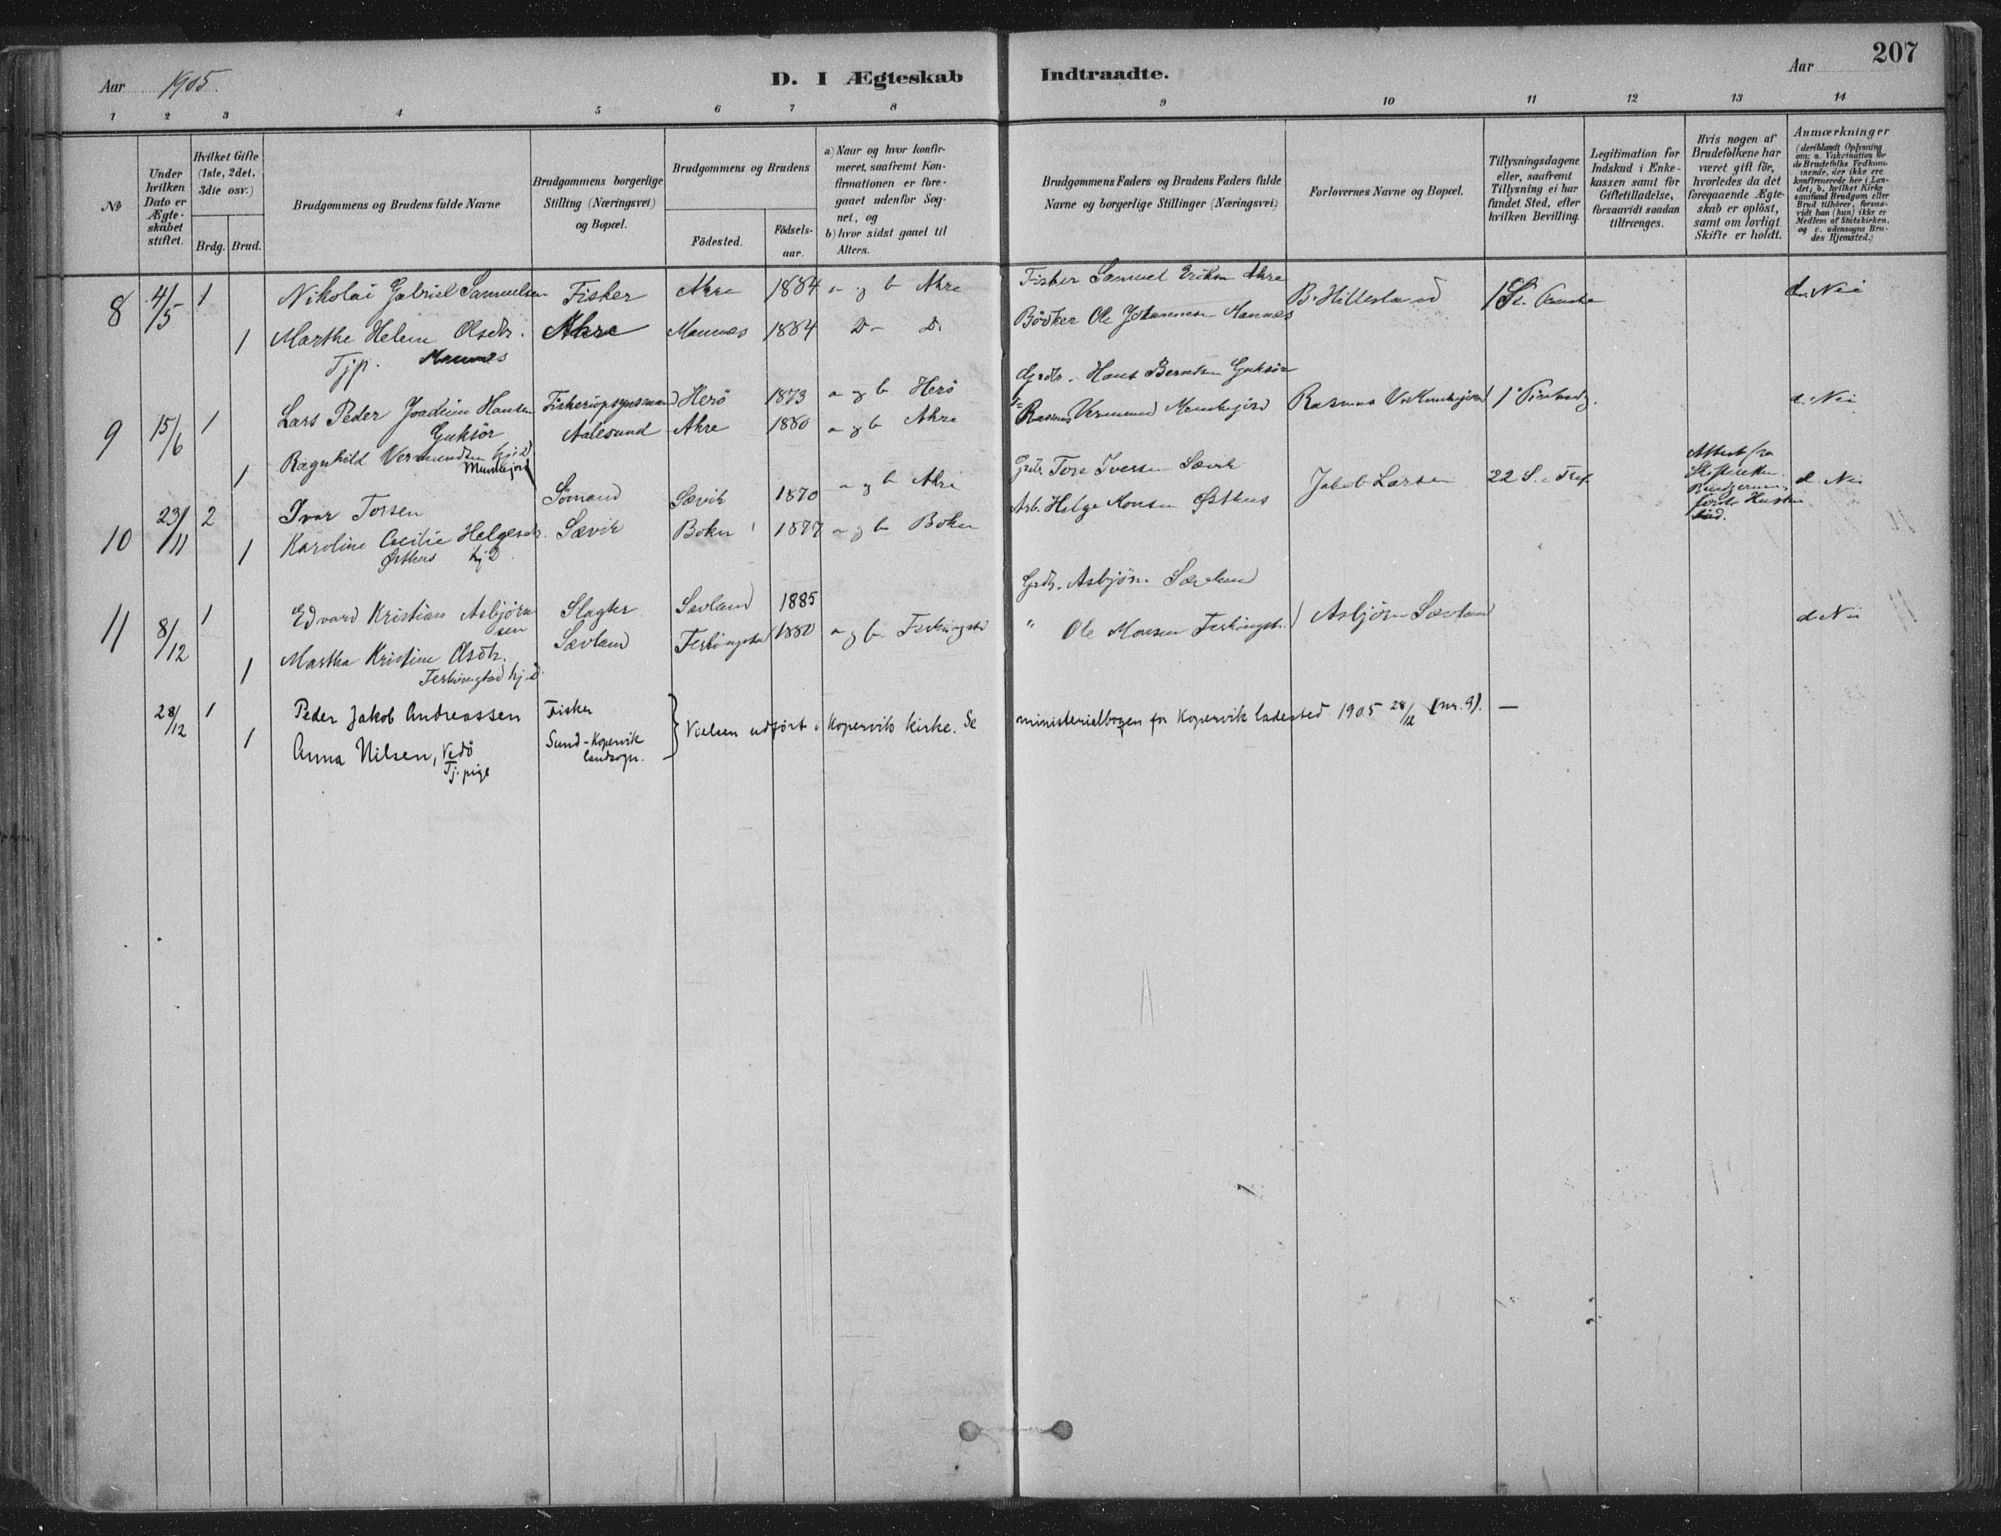 207
Aar 1905.
D. I Ægteskab Indtraadte.
Aar
1 2 3 4 5 6 7 8 9 10 11 12 13 14
№
Under hvilken Dato er Ægteskabet stiftet.
Hvilket Gifte (1ste, 2det, 3die osv.)
Brdg. Brud.
Brudgommens og Brudens fulde Navne
Brudgommens borgerlige Stilling (Næringsvei) og Bopæl.
Brudgommens og Brudens
Födested.
Födselsaar.
a) Naar og hvor konfirmeret, saafremt Konfirmationen er foregaaet udenfor Sognet, og
b) hvor sidst gaaet til Alters.
Brudgommens Faders og Brudens Faders fulde Navne og borgerlige Stillinger (Næringsvei)
Forlovernes Navne og Bopæl.
Tillysningsdagene eller, saafremt Tillysning ei har fundet Sted, efter hvilken Bevilling.
Legitimation for Indskud i Enkekassen samt for Giftetilladelse, forsaavidt saadan tiltrænges.
Hvis nogen af Brudefolkene har været gift för, hvorledes da det foregaaende Ægteskab er oplöst, samt om lovligt Skifte er holdt.
Anmærkninger
(deriblandt Oplysning om: a. Vakcination for de Brudefolks Vedkommende, der ikke ere konfirmerede her i Landet; b. hvilket Kirkesamfund Brudgom eller Brud tilhörer, forsaavidt han (hun) ikke er Medlem af Statskirken, og c. udensogns Brudes Hjemsted.)
8 4/5 1 Nikolai Gabriel Samuelsen Fisker Akre 1884 a og b Akre Fisker Samuel Eriksen Akre B. Hillesland d. Nei
1 Marthe Helene Olsdtr. Akre Mannes 1884 D- D. Bödker Ole Johannesen Mannes
Tjp. Mannes
9 15/6 1 Lars Peder Joachim Hansen Fiskeriopsynsmand Herö 1873 a og b Herö Grdbr. Hans Berntsen Gjuksör Rasmus d. Nei
Gjuksör Aalesund Akre 1880 a og b Akre Rasmus Vermund Munkejord
1 Ragnhild Vermundsen hj. D
Munkejord
10 23/11 2 Ivar Torsen Sömand Sævik 1870 a og b Akre Grdbr. Tore Iversen Sævik Jakob Larsen 22 S. e. Tref. d. Nei
1 Karoline Cecilie Helgesdtr. Sævik Bokn 1877 a og b Bokn Arb. Helge Monsen Østhus
Østhus hj. D
Attest fra Skifteretten
11 8/12 1 Edvard Kristian Asbjörnsen Slagter Sævland 1885 Grdbr. Asbjörn Sævland Asbjörn Sævland d Nei
1 Martha Kristine Olsdtr. Sævland Ferkingstad 1880 a og b. Ferkingstd " Ole Monsen Ferkingst.
Ferkingstad hj. D.
28/12 1 Peder Jakob Andreassen Fisker
1 Anna Nilsen, Vedö Sund - Kopervik landsogn.
Tj. pige
Vielsen udfört i Kopervik kirke. Se ministerialbogen for Kopervik ladested 1905 28/12 (nr. 9). —